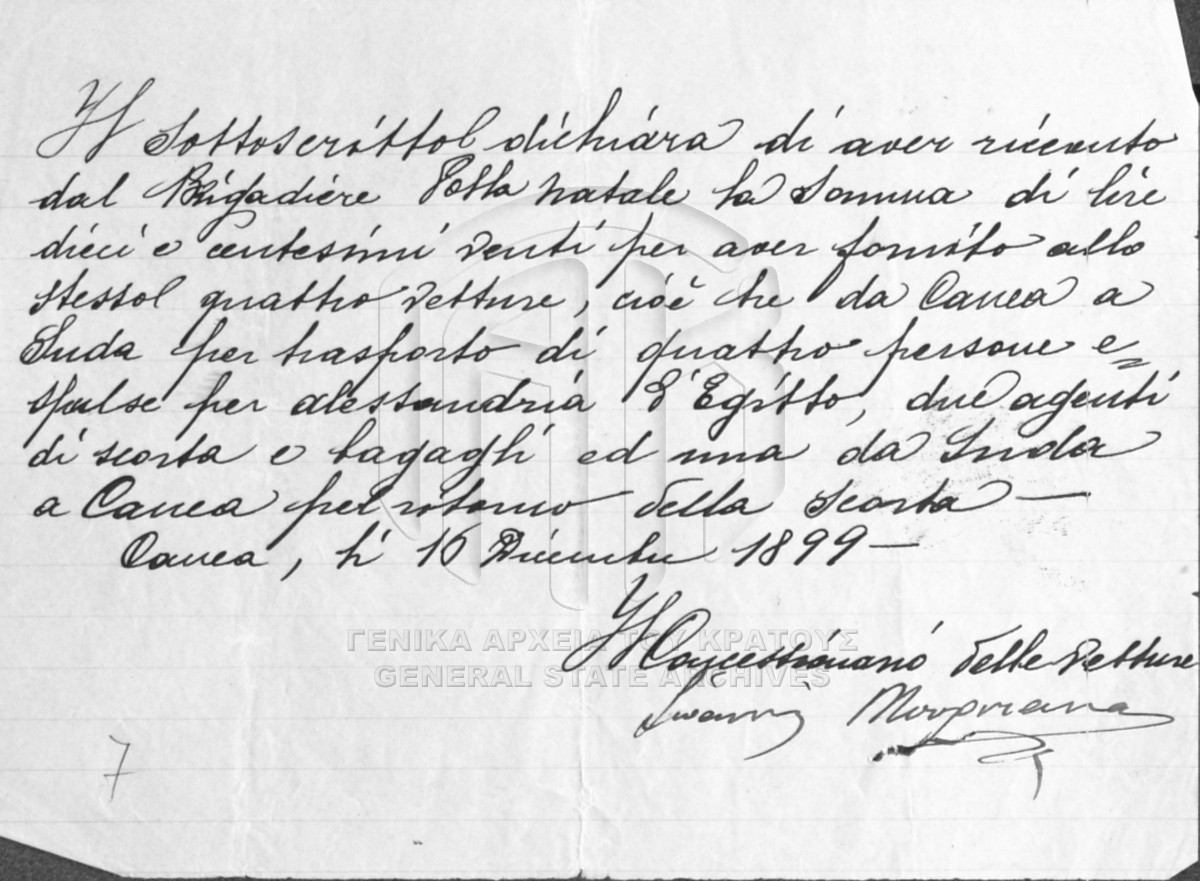 Il Sottoscritto dichiara di aver ricevuto
dal Brigadiere Natale la Somma di lire
dieci e centesimi venti per aver fornito allo
stesso quattro vetture, cioè tre da Canea a
Suda per trasporto di quattro persone e=
spulse per alessandria d'Egitto, due agenti
di scorta e bagagli ed una da Suda
a Canea pel ritorno della scorta —
Canea, li 16 Dicembre 1899 —
ΓΕΝΙΚΑ ΑΡΧΕΙΑ ΤΟΥ ΚΡΑΤΟΥΣ
GENERAL STATE ARCHIVES
Il Concessionario delle Vetture
7